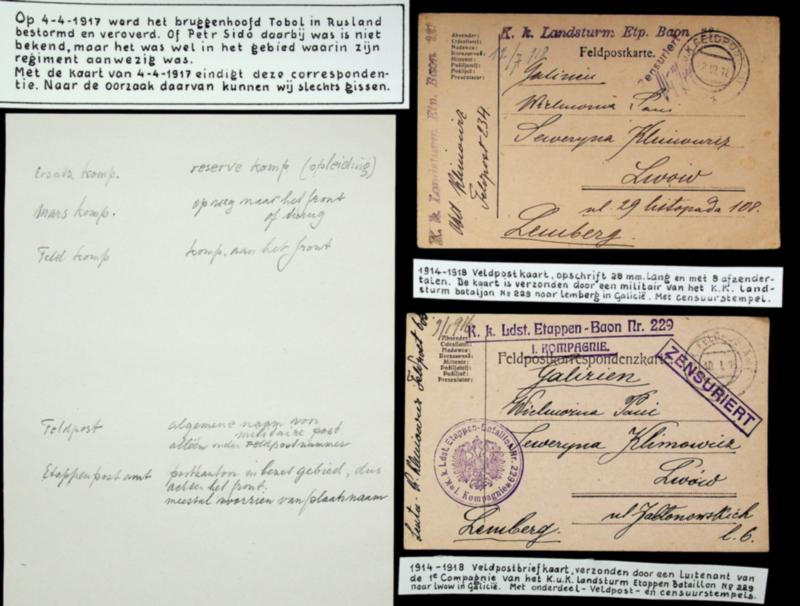 Op 4-4-1917 werd het bruggenhoofd Tobol in Rusland
bestormd en veroverd. Of Petr Sidó daarbij was is niet
bekend, maar het was wel in het gebied waarin zijn
regiment aanwezig was.
Met de kaart van 4-4-1917 eindigt deze corresponden-
tie. Naar de oorzaak daarvan kunnen wij slechts gissen.
Ersatz komp. reserve komp (opleiding)
Mars komp. op weg naar het front
of terug
Feld komp komp. aan het front
Feldpost algemene naam von
militaire post
alléén onder Feldpostnummer
Etappenpostamt postkantoor in bezet gebied, dus
achter het front.
meestal voorzien van plaatsnaam
K. k. Landsturm Etp. Baon 229
Feldpostkarte.
Absender:
Zensuriert
K. k. Landsturm Etp. Baon 229
Klimowicz
Feldpost 234
Galizien
Wielmożna Pani
Seweryna Klimowicz
Lwów
ul. 29 listopada 108.
Lemberg.
1914-1918 Veldpostkaart, opschrift 28 mm. lang en met 8 afzender-
talen. De kaart is verzonden door een militair van het K.K. Land-
sturm bataljon No 229 naar Lemberg in Galicië. Met censuurstempel.
K. k. Ldst. Etappen-Baon Nr. 229
1. KOMPAGNIE.
Feldpostkorrespondenzkarte
Absender:
ZENSURIERT
K. k. Ldst. Etappen-Bataillon Nr. 229
1. Kompagnie
Klimowicz Feldpost
Galizien
Wielmożna Pani
Seweryna Klimowicz
Lwów
ul Jabłonowskich
l. 6.
Lemberg.
1914-1918 Veldpostbriefkaart, verzonden door een Luitenant van
de 1e Compagnie van het K.u.K. Landsturm Etappen Bataillon No 229
naar Lwow in Galicië. Met onderdeel-Veldpost- en censuurstempels.